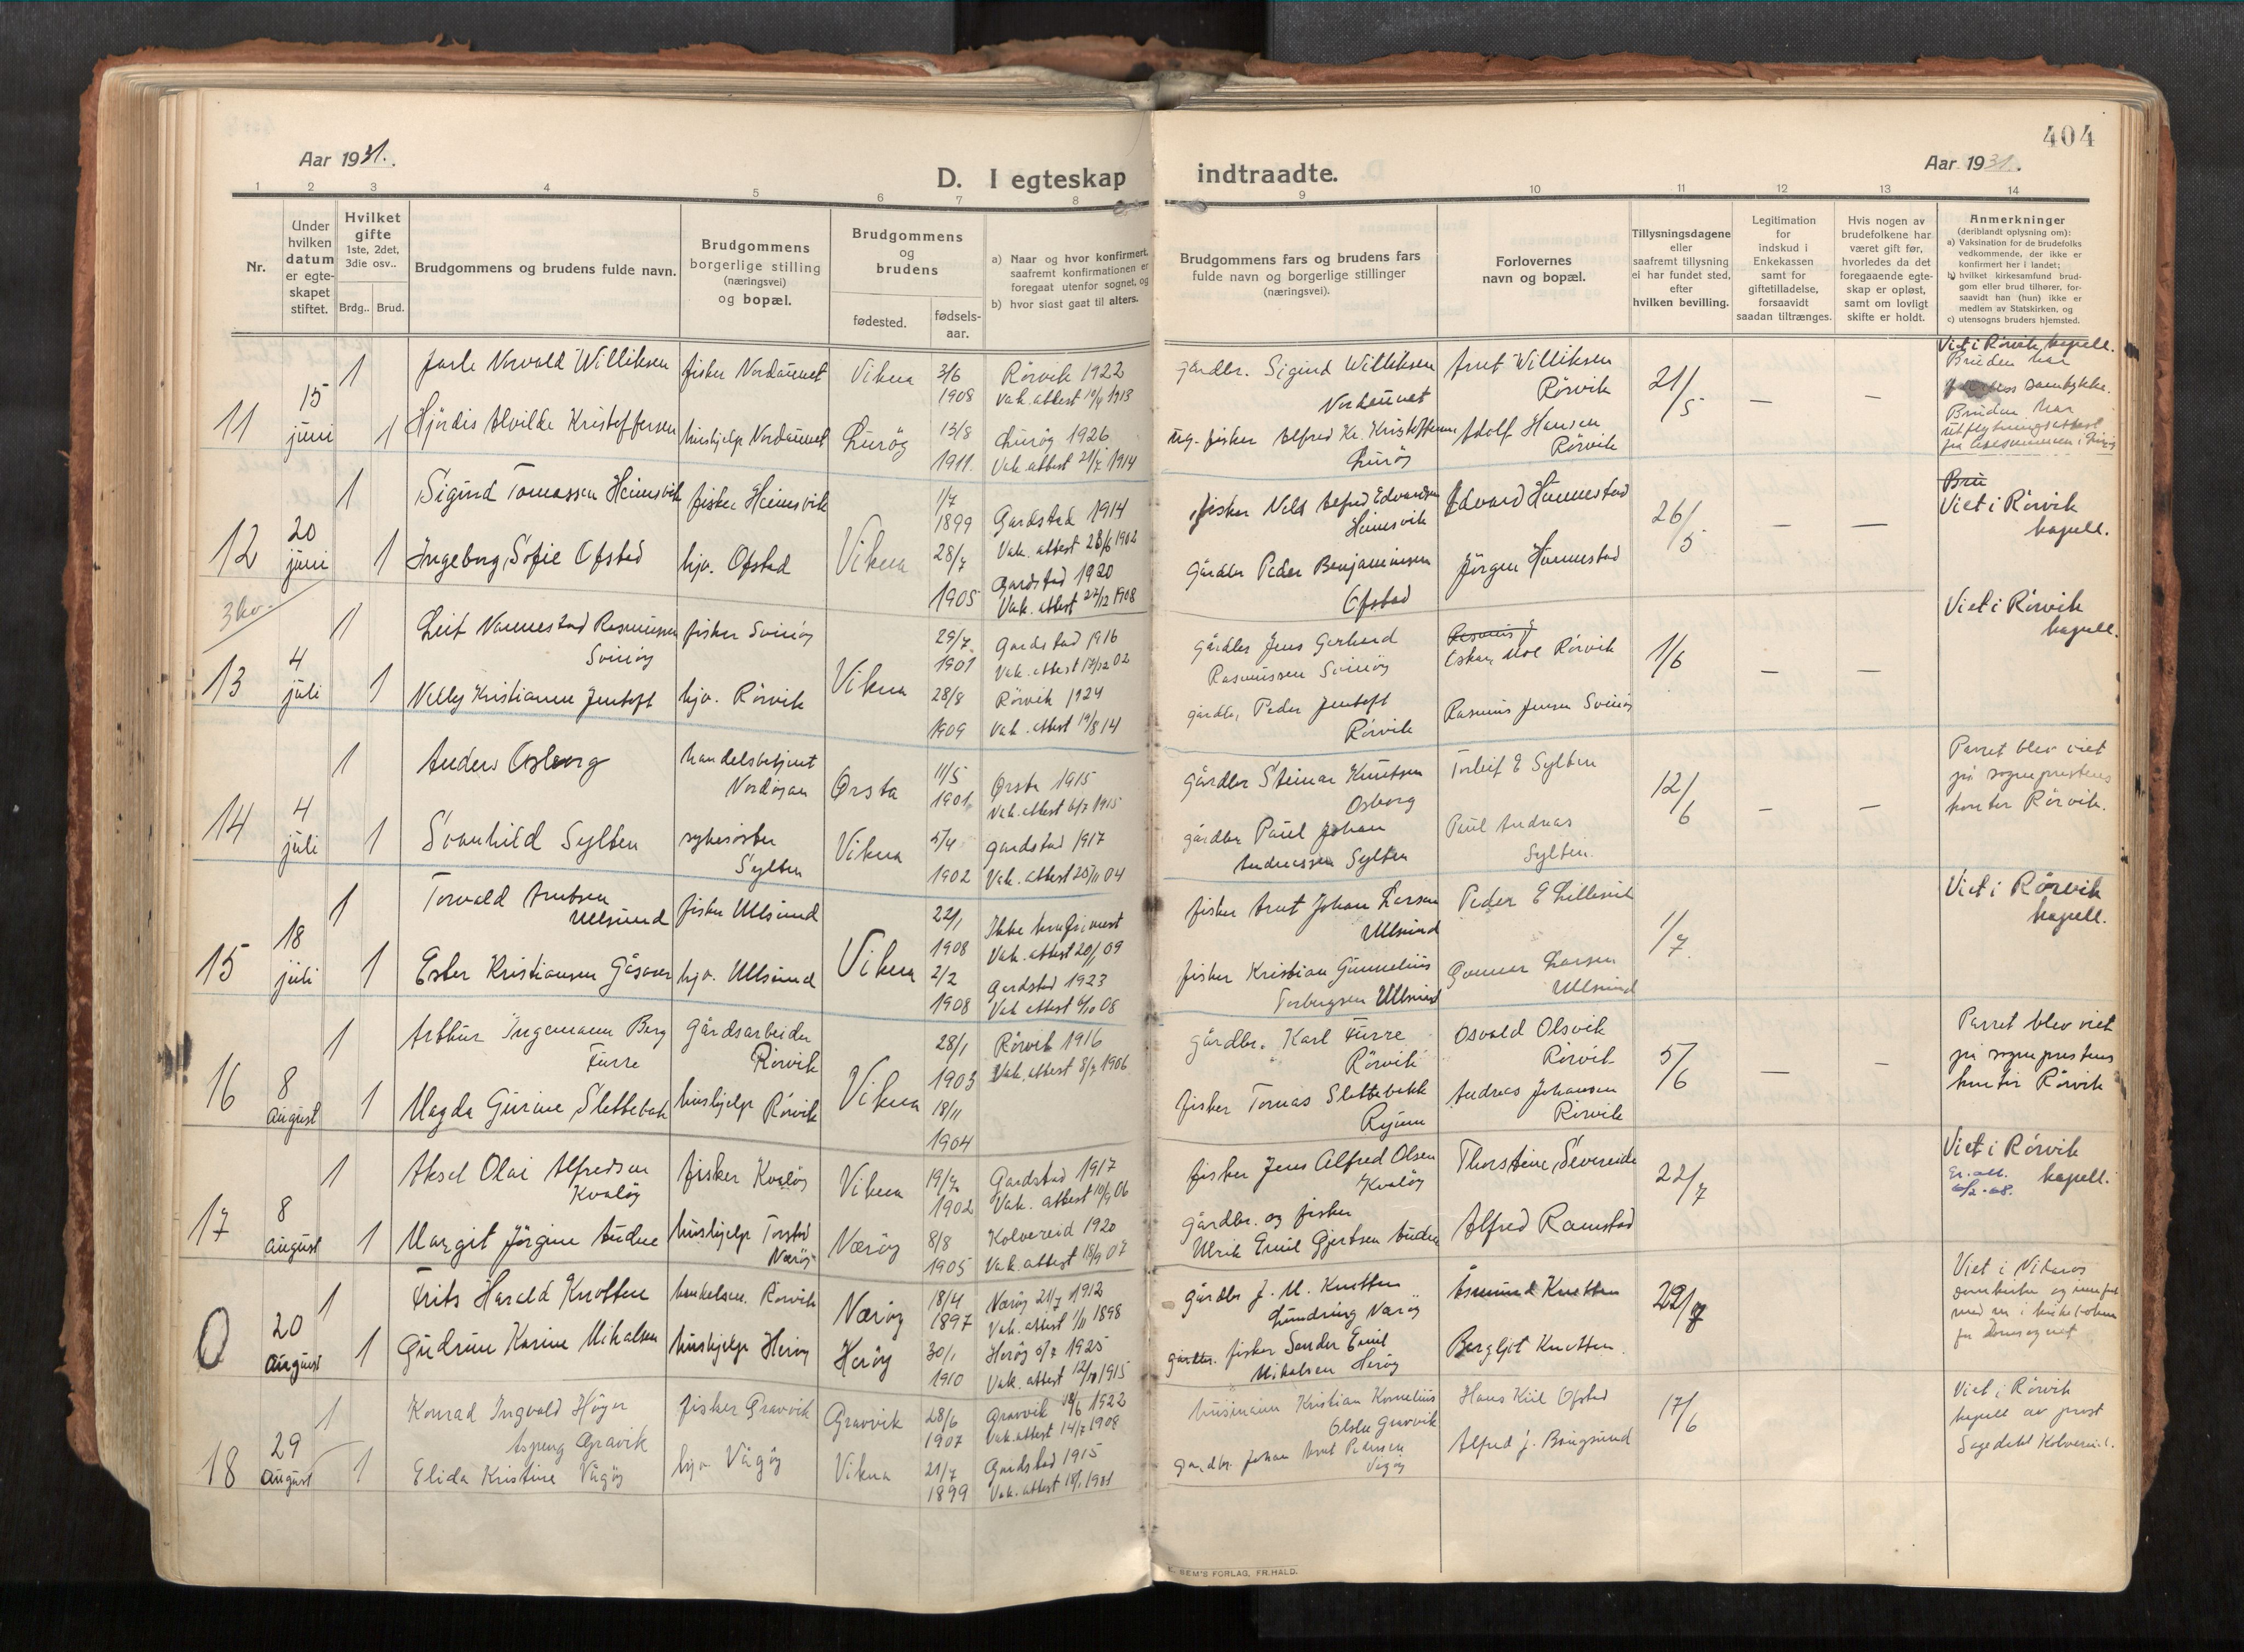 404
Aar 1931.
Aar 1931.
D. I egteskap indtraadte.
1 2 3 4 5 6 7 8 9 10 11 12 13 14
Nr.
Under hvilken datum er egte-skapet stiftet.
Hvilket gifte 1ste, 2det, 3die osv..
Brdg.. Brud.
Brudgommens og brudens fulde navn.
Brudgommens borgerlige stilling (næringsvei) og bopæl.
Brudgommens og brudens
fødested.
fødsels-aar.
a) Naar og hvor konfirmert, saafremt konfirmationen er foregaat utenfor sognet, og
b) hvor sidst gaat til alters.
Brudgommens fars og brudens fars fulde navn og borgerlige stillinger (næringsvei).
Forlovernes navn og bopæl.
Tillysningsdagene eller saafremt tillysning ei har fundet sted, efter hvilken bevilling.
Legitimation for indskud i Enkekassen samt for giftetilladelse, forsaavidt saadan tiltrænges.
Hvis nogen av brudefolkene har været gift før, hvorledes da det foregaaende egte-skap er opløst, samt om lovligt skifte er holdt.
Anmerkninger (deriblandt oplysning om):
a) Vaksination for de brudefolks vedkommende, der ikke er konfirmert her i landet;
b) hvilket kirkesamfund brud-gom eller brud tilhører, for-saavidt han (hun) ikke er medlem av Statskirken, og
c) utensogns bruders hjemsted.
11 15 juni
1 Jarle Norvald Williksen fisker Nordaunet Vikna 3/6 1908 Rørvik 1922 Vak. attest 10/4 1913
1 Hjördis Alvilde Kristoffersen hushjelp Nordaunet Lurøy 13/8 1911. Lurøy 1926 Vak. attest 21/7 1914
Gårdbr. Sigurd Williksen Nordaunet Arnt Williksen Rørvik 21/5 — —
fisker Alfred Kr. Kristoffersen Lurøy Adolf Hansen Rørvik
Viet i Rørvik kapell.
Bruden har
samtykke.
Bruden har
utflytningsattest
12 20 juni
1 Sigurd Tomassen Heimsvik fisker Heimsvik 1/7 1899 Gardstad 1914 Vak. attest 28/6 1902
1 Ingeborg Sofie Ofstad hjv. Ofstad Vikna 28/7 1905 Gardstad 1920 Vak. attest 27/12 1908
fisker Nils Alfred Edvardsen Heimsvik Edvard Hunnestad 26/5 — —
Gårdbr Peder Benjaminsen Ofstad Jörgen Hunnestad
Bru
Viet i Rörvik kapell.
13 4 juli
1 Leif Nannestad Rasmussen Svinöy fisker Svinöy 29/7 1901 Gardstad 1916 Vak. attest 17/12 02
1 Nelly Kristianne Jentoft hjv. Rörvik Vikna 28/8 1909 Rörvik 1924 Vak. attest 19/8 14
Gårdbr Jens Gerhard Rasmussen Svinöy Rasmus J Oskar Moe Rörvik 1/6 — —
gårdbr. Peder Jentoft Rörvik Rasmus Jensen Svinöy
Viet i Rörvik kapell.
14 4 juli
1 Anders Osborg handelsbetjent Nordøyan Ørsta 11/5 1901. Ørsta 1915 Vak. attest 6/7 1915
1 Svanhild Sylten sykesöster Sylten Vikna 5/4 1902 Gardstad 1917 Vak. attest 25/11 04
gårdbr Steinar Knutsen Osborg Torleif E Sylten 12/6 — —
gårdbr Paul Johan Andreassen Sylten Paul Andreas Sylten.
Parret blev viet på sogneprestens kontor Rörvik.
15 18 juli
1 Torvald Arntsen Ullsund fisker Ullsund 22/1 1908 Ikke konfirmert Vak. attest 20/1 09
1 Ester Kristiansen Gåsvær hjv. Ullsund Vikna 2/2 1908 Gardstad 1923 Vak attest 6/10 08
fisker Arnt Johan Larsen Ullsund Peder E Lillevik 1/7.
fisker Kristian Gunnelius Torbergsen Ullsund Gunnar Larsen Ullsund
Viet i Rörvik kapell.
16 8 august
1 Arthur Ingemann Berg Furre Gårdsarbeider Rörvik 28/1 1903 Rörvik 1916 Vak. attest 8/7 1906
1 Magda Gurine Slettebak hushjelp Rörvik Vikna 18/11 1904
gårdbr. Karl Furre Rörvik Osvald Olsvik Rörvik 5/6 — —
fisker Tomas Slettebakk Ryum Andreas Johansen Rörvik
Parret blev viet på sogneprestens kontor Rörvik
17 8 august
1 Aksel Olai Alfredsen Kvalöy fisker Kvalöy Vikna 19/7 1902 Gardstad 1917 Vak. attest 10/9 06
1 Margit Jörgine Audne hushjelp Torstad Nærøy Nærøy 8/8 1905 Kolvereid 1920 Vak. attest 18/9 07
fisker Jens Alfred Olsen Kvalöy Thorsteine Severeide 22/7
Gårdbr. og fisker Ulrik Emil Gjertsen Audne Alfred Ramstad
Viet i Rörvik kapell.
0 20 august
1 Frits Harald Knotten Rörvik Nærøy 18/4 1897 Nærøy 21/7 1912 Vak. attest 1/11 1898
1 Gudrun Karine Mikalsen hushjelp Heröy Herøy 30/1 1910 Herøy 5/7 1925 Vak. attest 12/10 1915
gårdbr J. M. Knotten Nærøy Åsmund Knotten 22/7
gårdbr. fisker Sander Emil Mikalsen Heröy Bergljot Knotten.
Viet i Nidaros domkirke og innført
18 29 august
1 Konrad Ingvald Höyer Aspeng Gravik fisker Gravvik Gravvik 28/6 1907 Gravvik 18/6 1922 Vak. attest 14/7 1908
1 Elida Kristine Vågöy hjv. Vågöy Vikna 21/7 1899 Gardstad 1915 Vak. attest 18/1 1901
husmann Kristian Kornelius Olsen Gravvik Hans Kiil Ofstad 17/6
Gardbr. Johan Arnt Pedersen Vågöy Alfred J. Bringsund
Viet i Rörvik kapell av prost Sagedahl Kolvereid.
SEM'S FORLAG, FR.HALD.